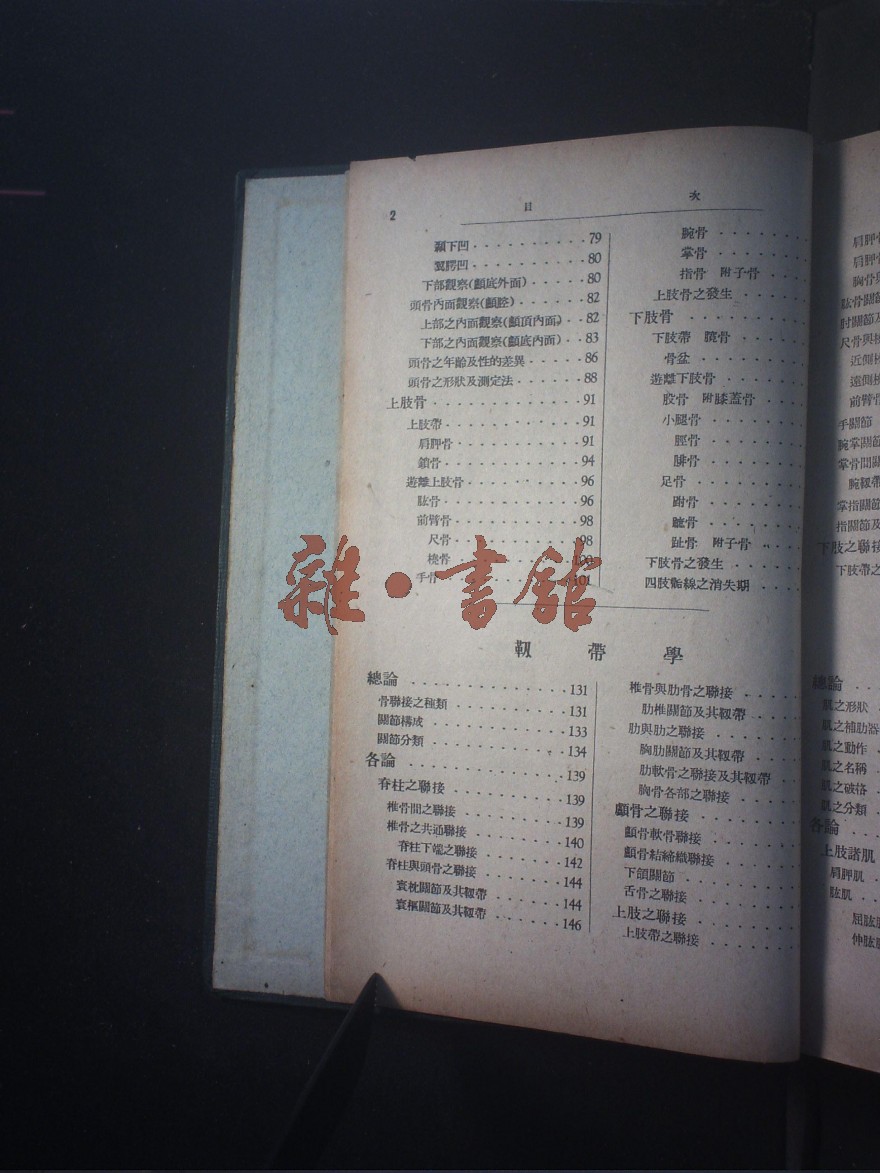 2
目 次
顳下凹 79
翼腭凹 80
下部觀察(顱底外面) 80
頭骨內面觀察(顱腔) 82
上部之內面觀察(顱頂內面) 82
下部之內面觀察(顱底內面) 83
頭骨之年齡及性的差異 86
頭骨之形狀及測定法 88
上肢骨 91
上肢帶 91
肩胛骨 91
鎖骨 94
遊離上肢骨 96
肱骨 96
前臂骨 98
尺骨 98
橈骨 100
手骨 101
腕骨
掌骨
指骨 附子骨
上肢骨之發生
下肢骨
下肢帶 髖骨
骨盆
遊離下肢骨
股骨 附膝蓋骨
小腿骨
脛骨
腓骨
足骨
跗骨
蹠骨
趾骨 附子骨
下肢骨之發生
四肢骺線之消失期
靱帶學
總論 131
骨聯接之種類 131
關節構成 133
關節分類 134
各論 139
脊柱之聯接 139
椎骨間之聯接 139
椎骨之共通聯接 140
脊柱下端之聯接 142
脊柱與頭骨之聯接 144
寰枕關節及其靱帶 144
寰樞關節及其靱帶 146
椎骨與肋骨之聯接
肋椎關節及其靱帶
肋與肋之聯接
胸肋關節及其靱帶
肋軟骨之聯接及其靱帶
胸骨各部之聯接
顱骨之聯接
顱骨軟骨聯接
顱骨結締織聯接
下頜關節
舌骨之聯接
上肢之聯接
上肢帶之聯接
肩胛
肩胛
胸骨與
肱骨關節
肘關節及
尺骨與橈
近側橈
遠側橈
前臂骨
手關節
腕掌關節
掌骨間關
腕靱帶
掌指關節
指關節及
下肢之聯接
下肢帶之
總論
肌之形狀
肌之補助器
肌之動作
肌之名稱
肌之分類
各論
上肢諸肌
肩胛肌
肱肌
屈肱
伸肱
雜·書館